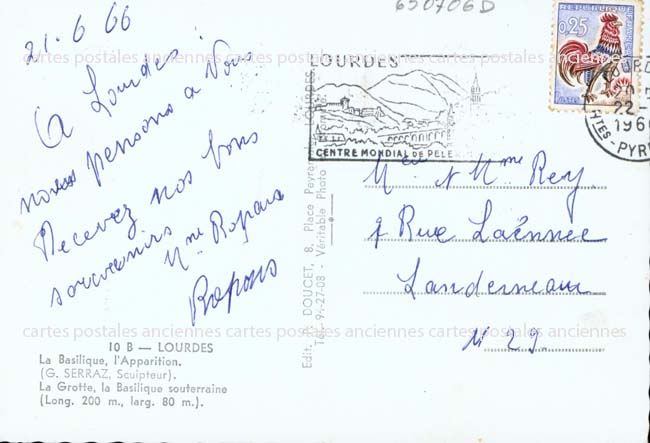 650706D
21.6.66
A Lourdes
nous pensons a Vous
Recevez nos bons
souvenirs
Mme Ropars
Ropars
10 B — LOURDES
La Basilique, l'Apparition.
(G. SERRAZ, Sculpteur).
La Grotte, la Basilique souterraine
(Long. 200 m., larg. 80 m.).
Edit. A. DOUCET, 8, Place Peyre LOURDES
Tél. 94-27-08 - Véritable Photo
LOURDES
CENTRE MONDIAL DE PELE
REPUBLIQUE
0,25
22
196
HTES-PYR
Mme Rey
Rue Laënnec
Landerneau
29
cartes postales anciennes cartes postales anciennes cartes postales anciennes
cartes postales anciennes cartes postales anciennes cartes postales anciennes
cartes postales anciennes cartes postales anciennes cartes postales anciennes